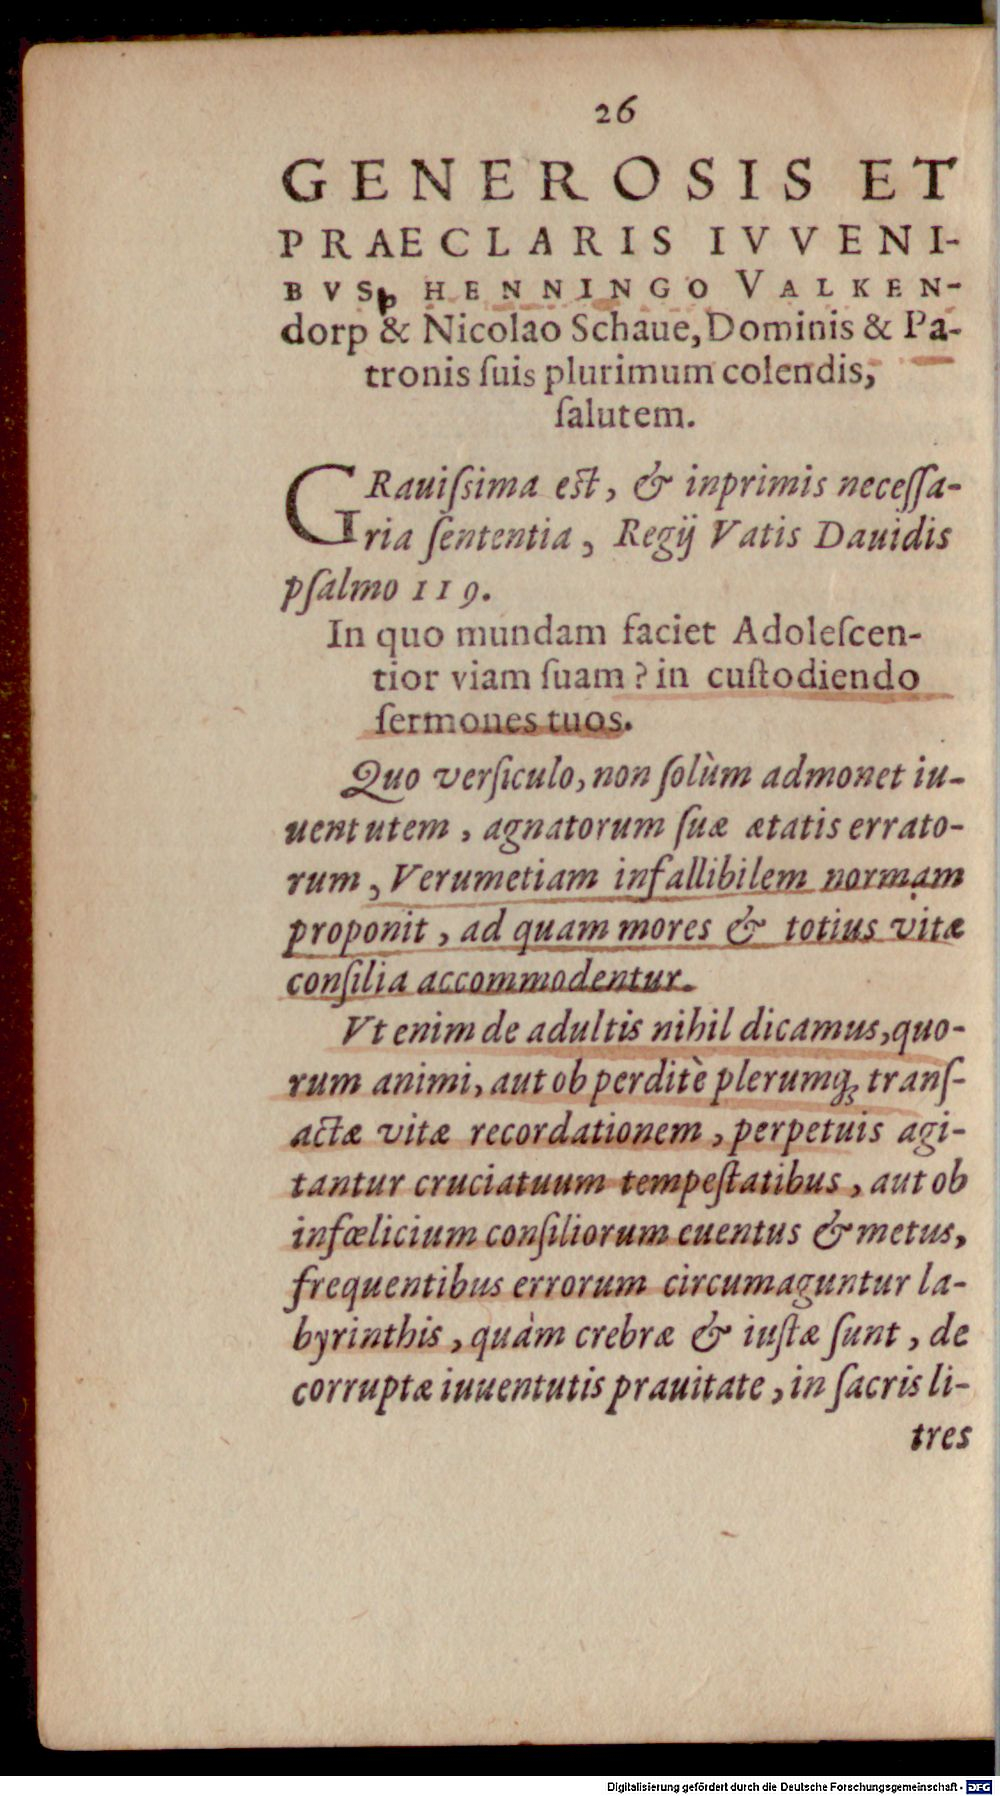 26
GENEROSIS ET
PRAECLARIS IVVENI-
BVS, HENNINGO VALKEN-
dorp & Nicolao Schaue, Dominis & Pa-
tronis ſuis plurimum colendis,
ſalutem.
GRauiſsima est, & inprimis neceſſa-
ria ſententia, Regij Vatis Dauidis
pſalmo 119.
In quo mundam faciet Adoleſcen-
tior viam ſuam? in cuſtodiendo
ſermones tuos.
Quo verſiculo, non ſolùm admonet iu-
uentutem, agnatorum ſuæ ætatis errato-
rum, Verumetiam infallibilem normam
proponit, ad quam mores & totius vitæ
conſilia accommodentur.
Vt enim de adultis nihil dicamus, quo-
rum animi, aut ob perditè plerumq; tranſ-
actæ vitæ recordationem, perpetuis agi-
tantur cruciatuum tempeſtatibus, aut ob
infœlicium conſiliorum euentus & metus,
frequentibus errorum circumaguntur la-
byrinthis, quàm crebræ & iuſtæ ſunt, de
corruptæ iuuentutis prauitate, in ſacris li-
tres
Digitalisierung gefördert durch die Deutsche Forschungsgemeinschaft - DFG